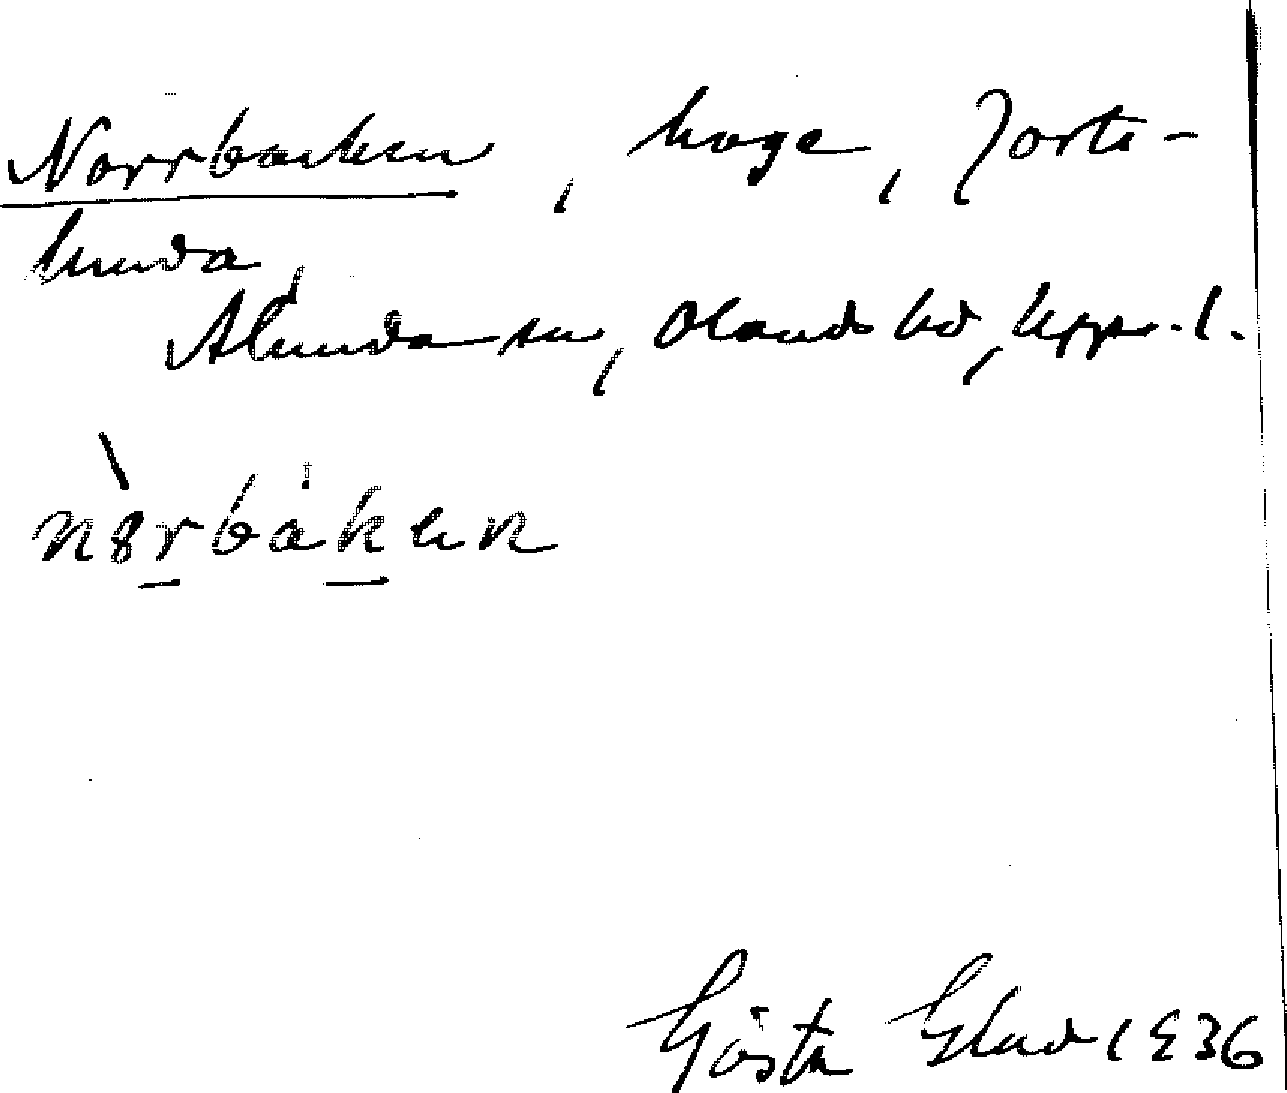 Norrbacken, hage, Forts-
lunda,
Alunda sn, Olands hd, Upps. l.
Gösta Glad 1936